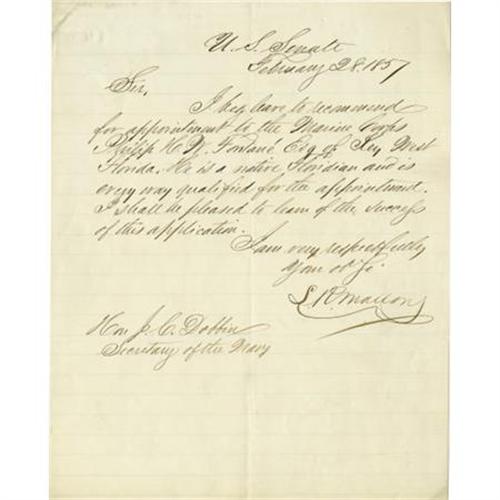 U. S. Senate
February 28. 1857
Sir,
I beg leave to recommend
for appointment to the Marine Corps
Philip C. W. Fontané Esq of Key West
Florida. He is a native Floridian and is
every way qualified for the appointment.
I shall be pleased to learn of the success
of this application.
I am very respectfully
Your ob. St.
S. R. Mallory
Hon J. C. Dobbin
Secretary of the Navy